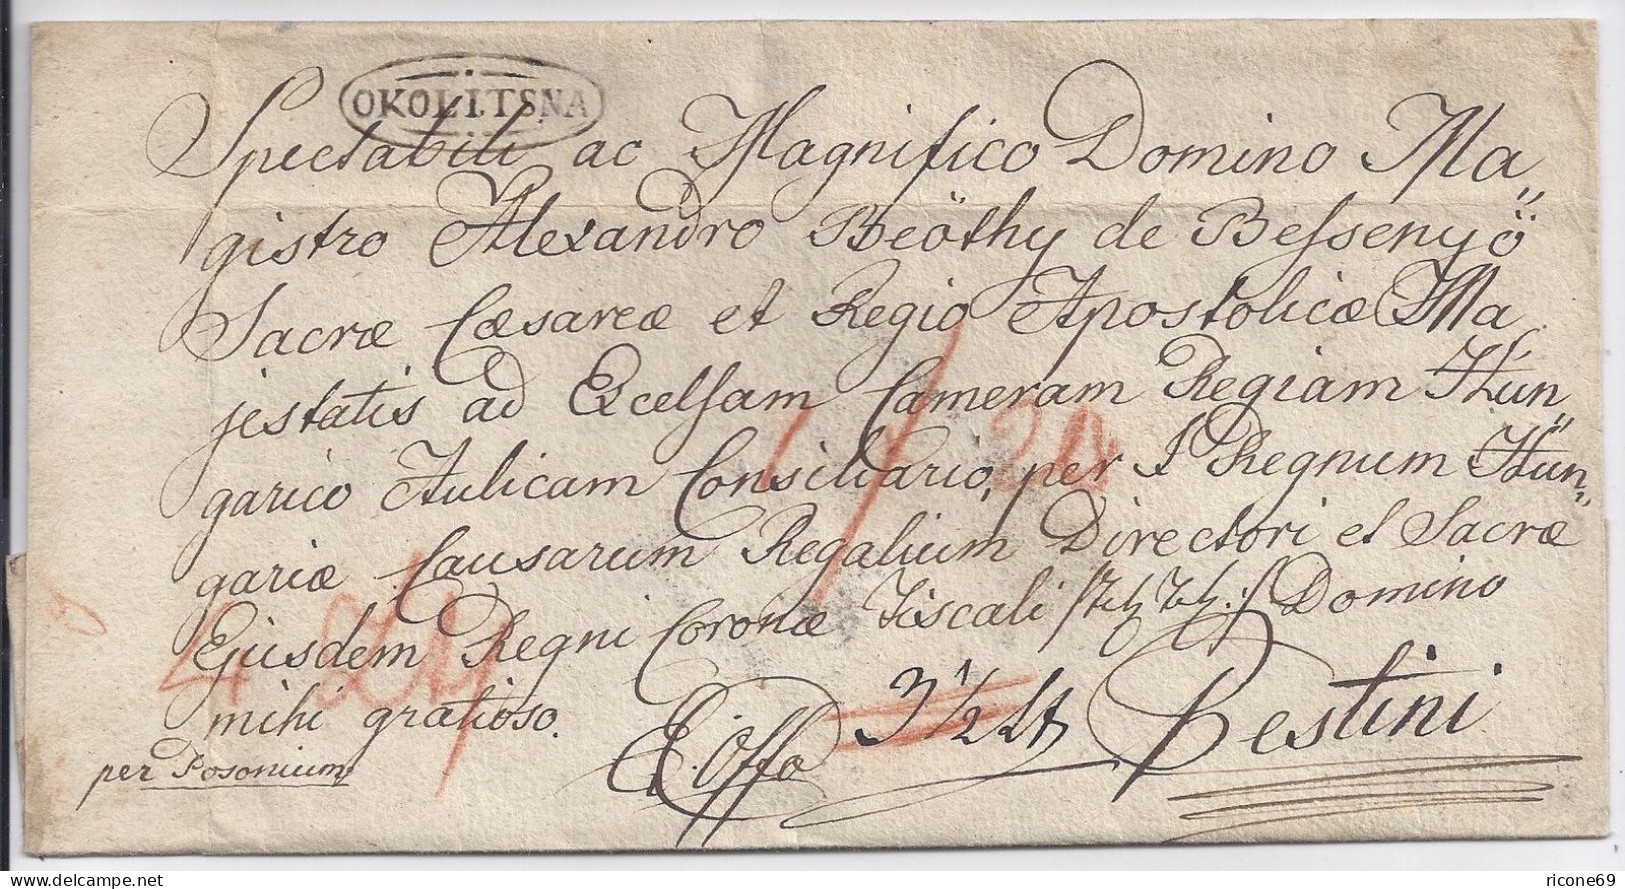 OKOLITSNA
Spectabili ac Magnifico Domino Ma„
gistro Alexandro Beöthy de Bessenyö
Sacræ Cæsareæ et Regio Apostolicæ Ma
jestatis ad Excelsam Cameram Regiam Hun„
garico Aulicam Consiliario, per I Regnum Hun„
gariæ Causarum Regalium Directori et Sacræ
Ejusdem Regni Coronæ Fiscali Domino
mihi gratioso.
per Posonium
Ex Offo 3 1/2 Lt Pestini
delcampe.net
ricone69